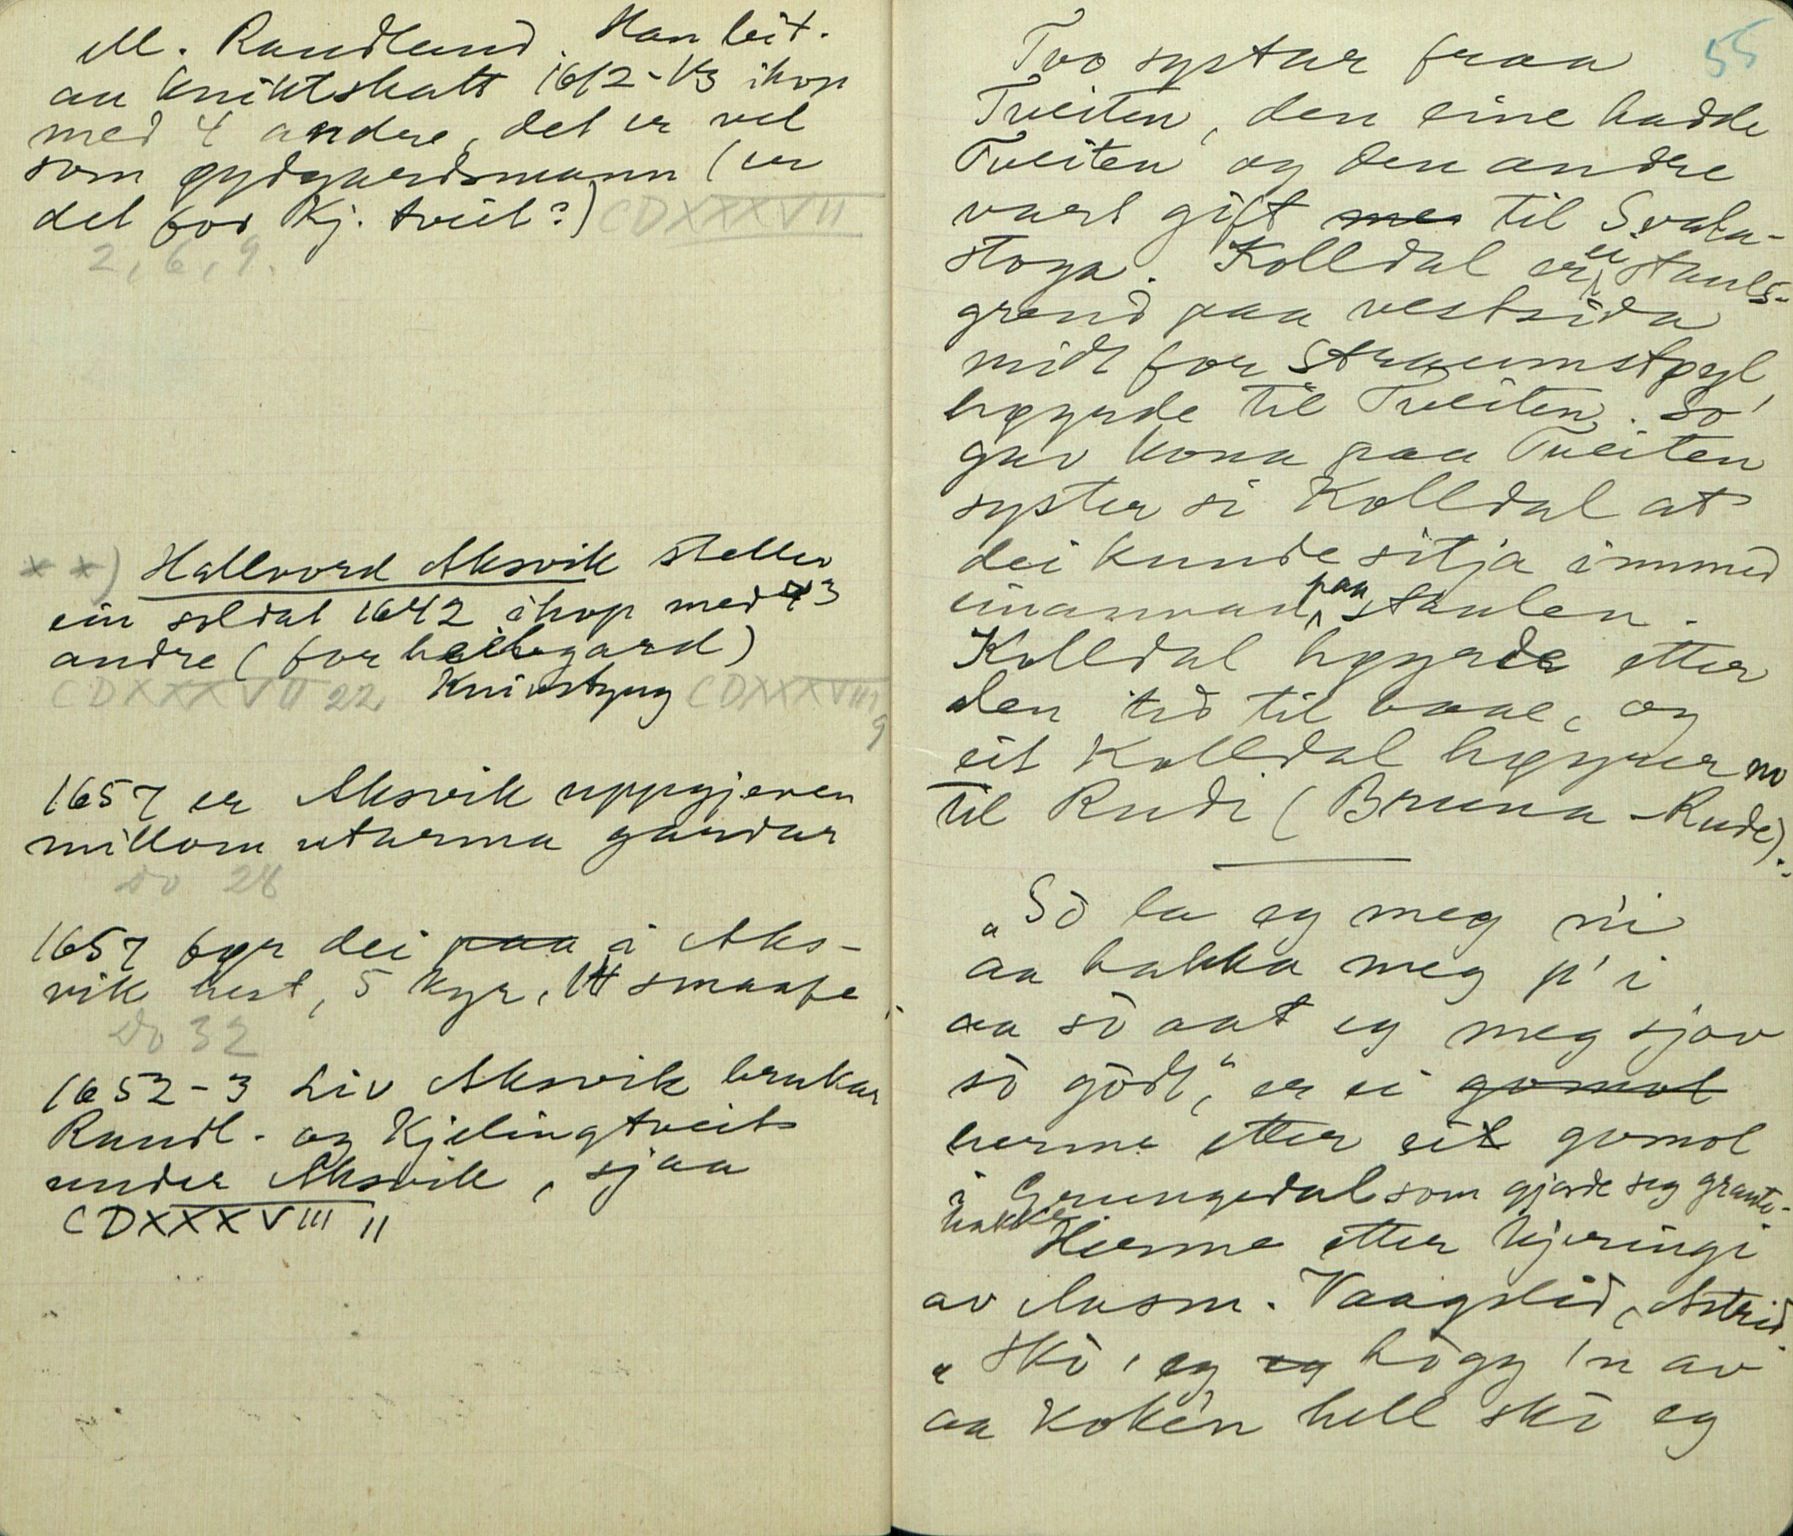 M. Raudland. Han beit.
au kniktskatt 1612-13 ihop
med 4 andre, det er vel
som øydgardsmann (er
det for Kj. tveit?) CDXXXVII
2, 6, 9.
**) Hallvord Aksvik steller
ein soldat 1642 ihop med 3
andre (for heilegard)
CDXXXVII 22 Knivstyng CDXXXVIII 9
1657 er Aksvik uppgjeven
millom utarma gardar
Do 28
1657 før dei paa i Aks-
vik hest, 5 kyr, 14 smaafe
Do 32
1652-3 Liv Aksvik brukar
Raudl. og Kjelingtveit
under Aksvik, sjaa
CDXXXVIII 11
55
Tvo systar fraa
Tveiten, den eine hadde
Tveiten og den andre
vart gift me til Svata-
stoga. Kolldal er ei stauls-
grend paa vestsida
midt for Straumstøyl,
høyrde til Tveiten. So
gav kona paa Tveiten
syster si Kolldal at
dei kunde sitja innmed
einannan paa staulen.
Kolldal høyrde etter
den tid til baae, og
eit Kolldal høyrer no
til Rudi (Bruna-Rudi).
"Sò la eg meg ni
aa bakka meg p' i
aa sò aat eg meg sjøv
sò gòdt," er ei gomol
herme etter eit gomol
i Grungedal som gjorde seg graute-
bakkar
Herme etter kjeringi
av Aasm. Vaagslid, Astrid
"Skò, eg eg hògg 'n av
aa kokèn hell skò eg